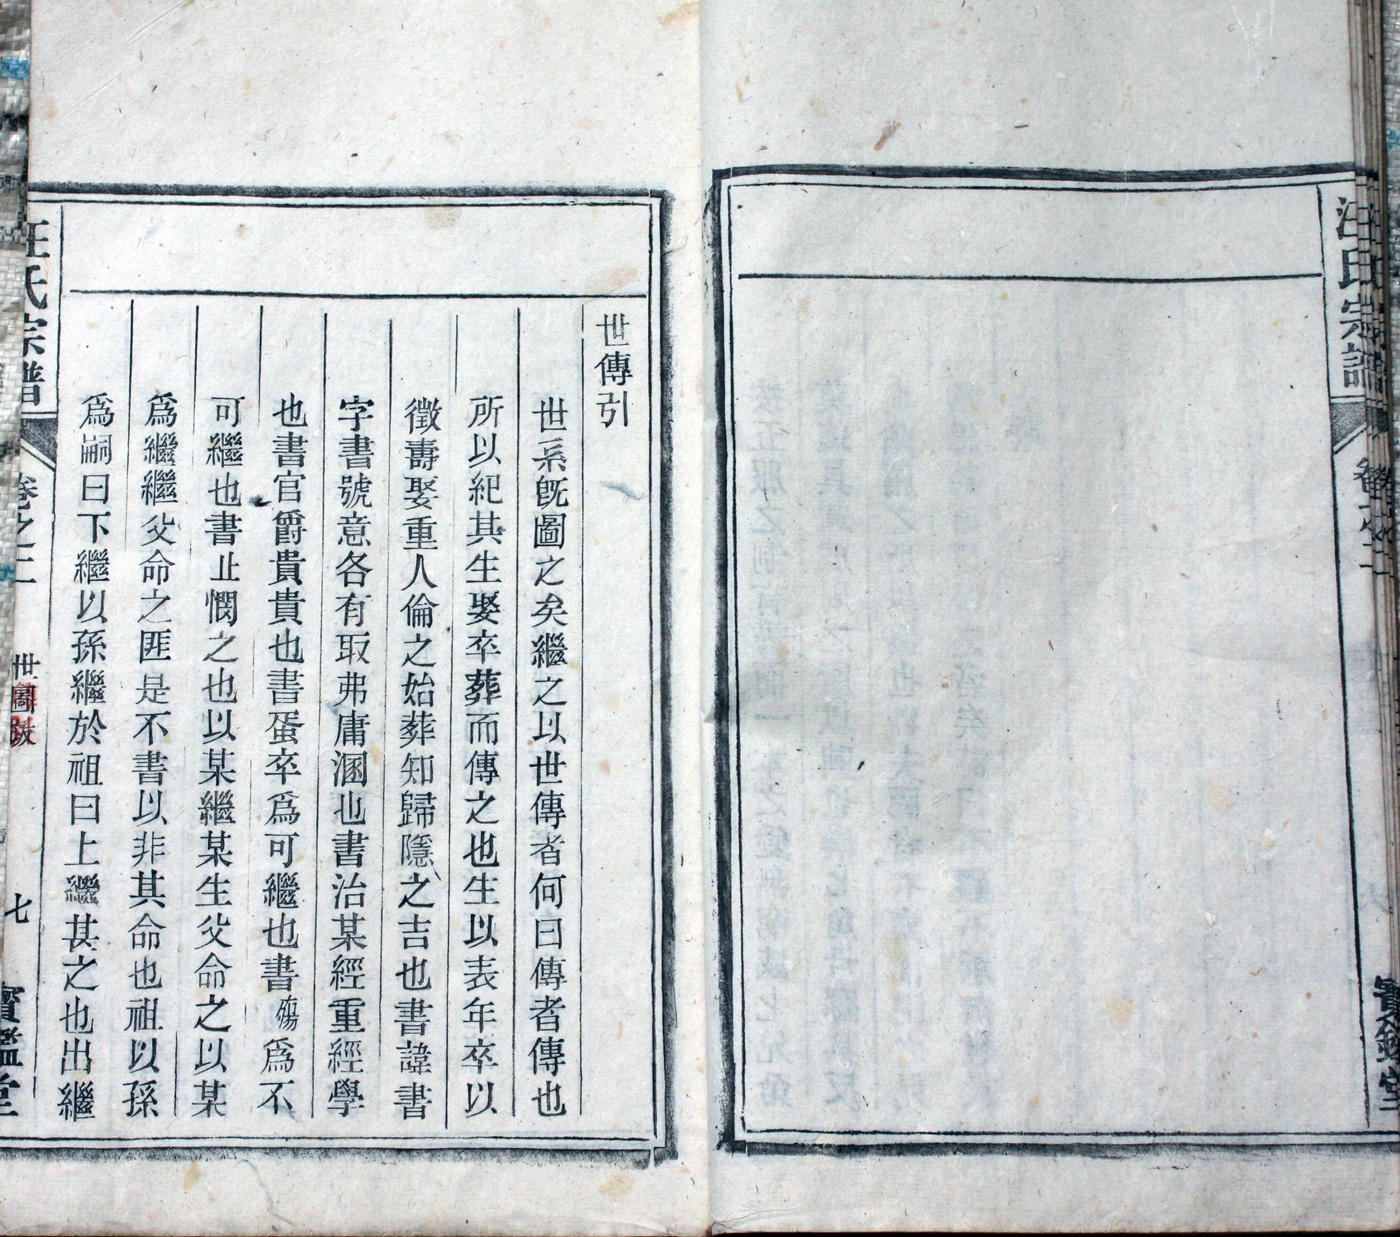 汪氏宗譜
卷之二
寶鑑堂
世傳引
世系旣圖之矣繼之以世傳者何曰傳者傳也
所以紀其生娶卒葬而傳之也生以表年卒以
徵壽娶重人倫之始葬知歸隱之吉也書諱書
字書號意各有取弗庸溷也書治某經重經學
也書官爵貴貴也書蚤卒爲可繼也書殤爲不
可繼也書止憫之也以某繼某生父命之以某
爲繼繼父命之匪是不書以非其命也祖以孫
爲嗣曰下繼以孫繼於祖曰上繼甚之也出繼
汪氏宗譜
卷之二
世圖
七
寶鑑堂